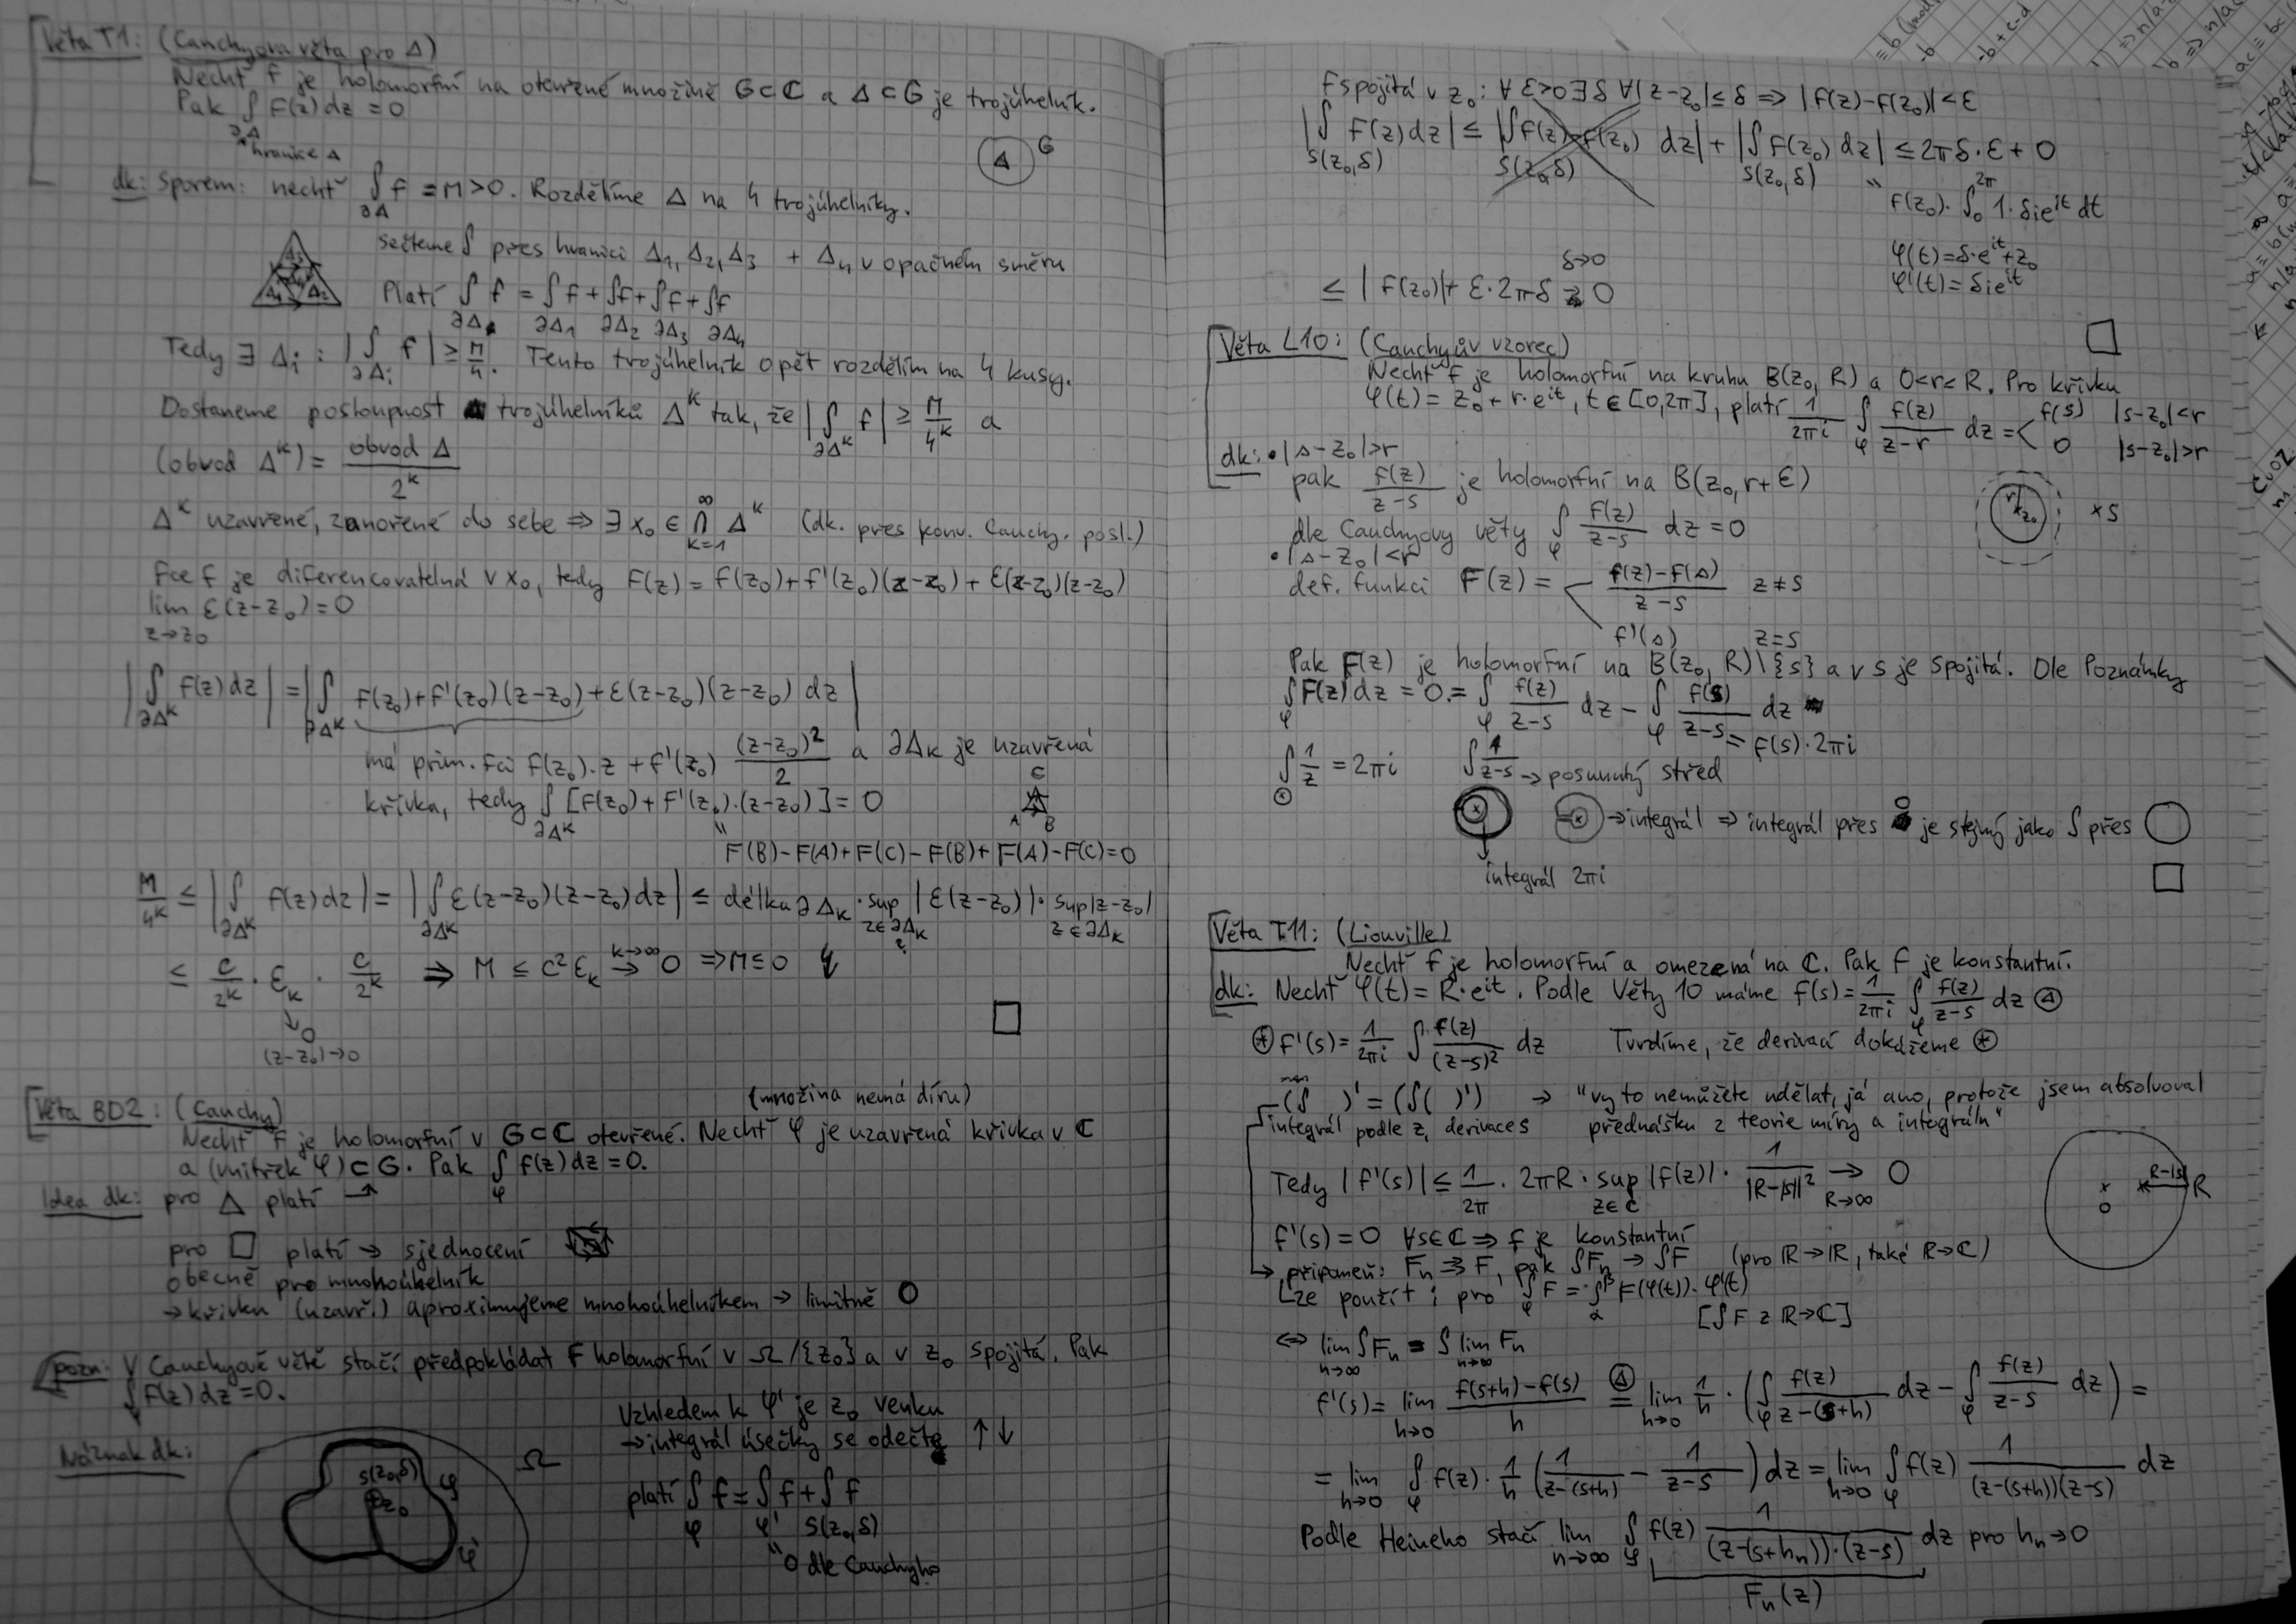 Věta T1: (Cauchyova věta pro Δ)
Nechť f je holomorfní na otevřené množině G⊂C a Δ⊂G je trojúhelník.
Pak ∫_{∂Δ} f(z) dz = 0
hranice Δ
Δ G
dk: Sporem: nechť ∫_{∂Δ} f = M > 0. Rozdělíme Δ na 4 trojúhelníky.
sečteme ∫ přes hranici Δ1, Δ2, Δ3 + Δ4 v opačném směru
Platí ∫_{∂Δ} f = ∫_{∂Δ1} f + ∫_{∂Δ2} f + ∫_{∂Δ3} f + ∫_{∂Δ4} f
Tedy ∃ Δi : |∫_{∂Δi} f| ≥ M/4. Tento trojúhelník opět rozdělím na 4 kusy.
Dostaneme posloupnost trojúhelníků Δ^k tak, že |∫_{∂Δ^k} f| ≥ M/4^k a
(obvod Δ^k) = obvod Δ / 2^k
Δ^k uzavřené, zanořené do sebe ⇒ ∃ x0 ∈ ∩_{k=1}^∞ Δ^k (dk. přes konv. Cauchy. posl.)
Fce f je diferencovatelná v x0, tedy F(z) = f(z0) + f'(z0)(z-z0) + ε(z-z0)(z-z0)
lim_{z→z0} ε(z-z0) = 0
|∫_{∂Δ^k} f(z) dz| = |∫_{∂Δ^k} f(z0) + f'(z0)(z-z0) + ε(z-z0)(z-z0) dz|
má prim. fci f(z0)·z + f'(z0) (z-z0)²/2 a ∂Δk je uzavřená
křivka, tedy ∫_{∂Δ^k} [f(z0) + f'(z0)·(z-z0)] = 0
A B C
F(B)-F(A)+F(C)-F(B)+F(A)-F(C)=0
M/4^k ≤ |∫_{∂Δ^k} f(z) dz| = |∫_{∂Δ^k} ε(z-z0)(z-z0) dz| ≤ délka ∂Δk · sup_{z∈∂Δk} |ε(z-z0)| · sup_{z∈∂Δk} |z-z0|
≤ c/2^k · εk · c/2^k ⇒ M ≤ c² εk →^{k→∞} 0 ⇒ M ≤ 0
↘ 0
(z-z0)→0
□
(množina nemá díru)
Věta BD2: (Cauchy)
Nechť f je holomorfní v G⊂C otevřené. Nechť φ je uzavřená křivka v C
a (vnitřek φ)⊂G. Pak ∫_φ f(z) dz = 0.
Idea dk: pro Δ platí ↗
pro □ platí → sjednocení
obecně pro mnohoúhelník
→ křivku (uzavř.) aproximujeme mnohoúhelníkem → limitně 0
pozn: V Cauchyově větě stačí předpokládat f holomorfní v Ω/{z0} a v z0 spojitá. Pak
∫ f(z) dz = 0.
Náznak dk:
S(z0,δ) φ z0 φ' Ω
Vzhledem k φ' je z0 venku
→ integrál úsečky se odečte ↑↓
platí ∫_φ f = ∫_{φ'} f + ∫_{S(z0,δ)} f
" 0 dle Cauchyho
F spojitá v z0: ∀ ε>0 ∃ δ ∀|z-z0| ≤ δ ⇒ |f(z)-f(z0)| < ε
|∫_{S(z0,δ)} f(z) dz| ≤ |∫_{S(z0,δ)} f(z)-f(z0) dz| + |∫_{S(z0,δ)} f(z0) dz| ≤ 2πδ·ε + 0
" f(z0)·∫_0^{2π} 1·δie^{it} dt
φ(t)=δ·e^{it}+z0
φ'(t)=δie^{it}
≤ |f(z0)|+ ε·2πδ →^{δ→0} 0
□
Věta L10: (Cauchyův vzorec)
Nechť f je holomorfní na kruhu B(z0, R) a 0<r<R. Pro křivku
φ(t) = z0 + r·e^{it}, t∈[0,2π], platí 1/(2πi) ∫_φ f(z)/(z-r) dz = < f(s) |s-z0|<r
0 |s-z0|>r
dk: • |s-z0|>r
pak f(z)/(z-s) je holomorfní na B(z0, r+ε)
r z0 × s
dle Cauchyovy věty ∫_φ f(z)/(z-s) dz = 0
• |s-z0|<r
def. funkci F(z) = < (f(z)-f(s))/(z-s) z≠s
f'(s) z=s
Pak F(z) je holomorfní na B(z0, R)\{s} a v s je spojitá. Dle Poznámky
∫_φ F(z) dz = 0 = ∫_φ f(z)/(z-s) dz - ∫_φ f(s)/(z-s) dz
= f(s)·2πi
∫ 1/z = 2πi ∫ 1/(z-s) → posunutý střed
→ integrál ⇒ integrál přes je stejný jako ∫ přes ○
integrál 2πi
□
Věta T11: (Liouville)
Nechť f je holomorfní a omezená na C. Pak f je konstantní.
dk: Nechť φ(t) = R·e^{it}. Podle Věty 10 máme f(s) = 1/(2πi) ∫_φ f(z)/(z-s) dz Ⓐ
⊛ f'(s) = 1/(2πi) ∫ f(z)/(z-s)² dz Tvrdíme, že derivací dokážeme ⊛
(∫ )' = (∫( )') → "vy to nemůžete udělat, já ano, protože jsem absolvoval
integrál podle z, derivace s přednášku z teorie míry a integrálu"
Tedy |f'(s)| ≤ 1/2π · 2πR · sup_{z∈C} |f(z)| · 1/|R-|s||² →_{R→∞} 0
0 R-|s| R
f'(s) = 0 ∀s∈C ⇒ f je konstantní
→ připomeň: Fn ⇉ F, pak ∫Fn → ∫F (pro R→R, také R→C)
Lze použít i pro ∫_φ F = ∫_α^β F(φ(t))·φ'(t)
[∫F z R→C]
⇔ lim_{n→∞} ∫Fn = ∫ lim_{n→∞} Fn
f'(s) = lim_{h→0} (f(s+h)-f(s))/h =^Ⓐ lim_{h→0} 1/h · (∫_φ f(z)/(z-(s+h)) dz - ∫_φ f(z)/(z-s) dz) =
= lim_{h→0} ∫_φ f(z)· 1/h (1/(z-(s+h)) - 1/(z-s)) dz = lim_{h→0} ∫_φ f(z) 1/((z-(s+h))(z-s)) dz
Podle Heineho stačí lim_{n→∞} ∫_φ f(z) 1/((z-(s+hn))·(z-s)) dz pro hn→0
Fn(z)